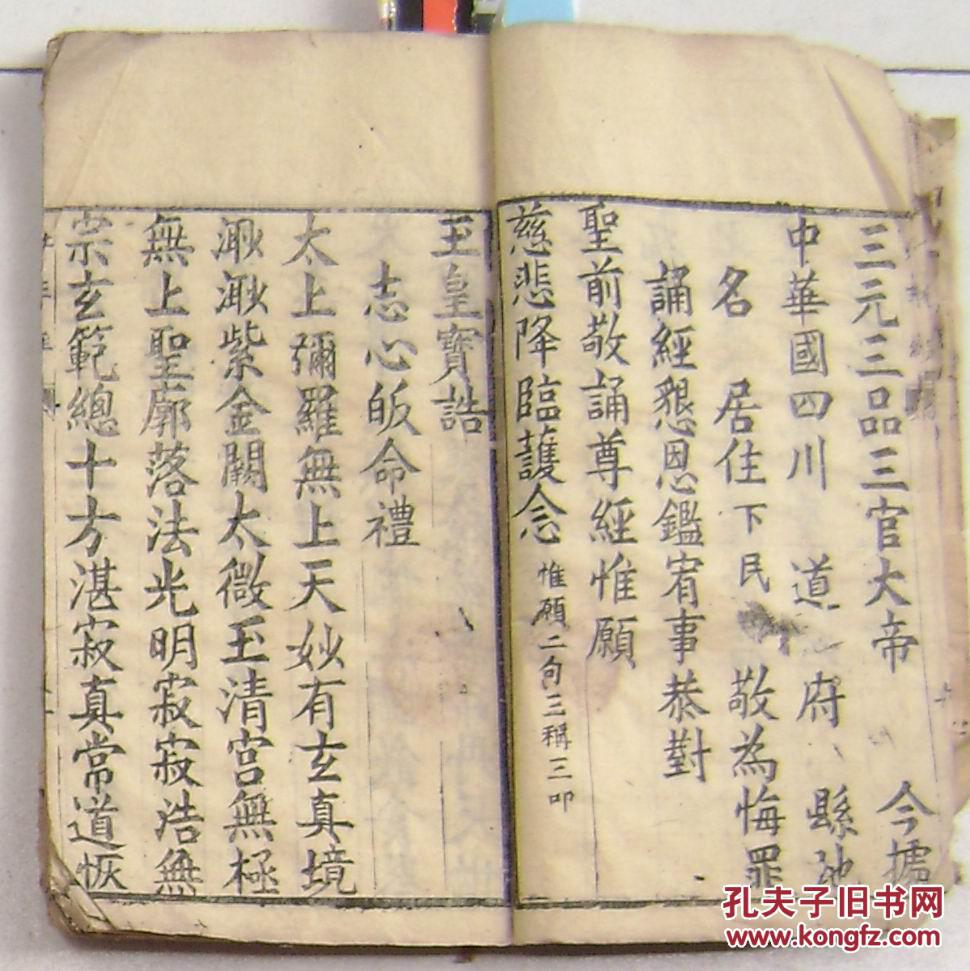 三元三品三官大帝 今據
中華國四川 道 府 縣地
名 居住下民 敬為悔罪
誦經懇恩鑑宥事恭對
聖前敬誦尊經惟願
慈悲降臨護念 惟願二句三稱三叩
玉皇寶誥
志心皈命禮
太上彌羅無上天妙有玄真境
渺渺紫金闕太微玉清宮無極
無上聖廓落法光明寂寂浩無
宗玄範總十方湛寂真常道恢
孔夫子旧书网
www.kongfz.com